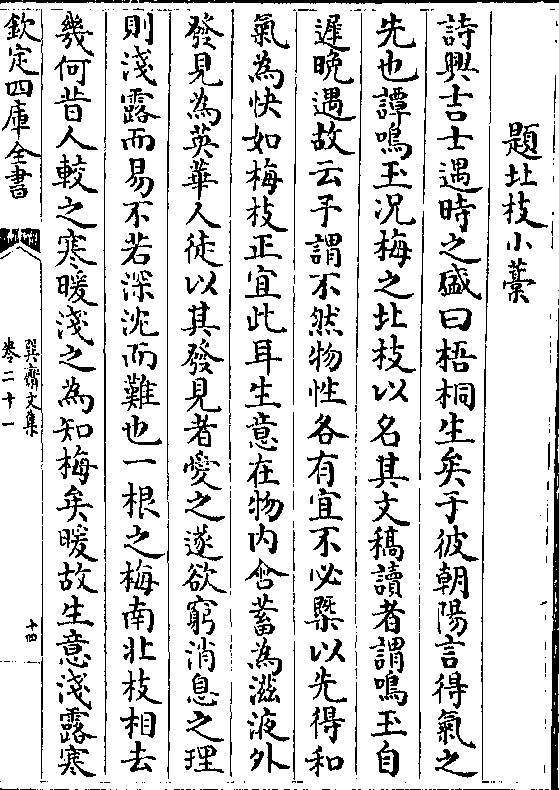 題北枝小藁
詩興吉士遇時之盛曰梧桐生矣于彼朝陽言得氣之
先也譚鳴玉况梅之北枝以名其文稿讀者謂鳴玉自
遲晚遇故云予謂不然物性各有宜不必槩以先得和
氣為快如梅枝正宜此耳生意在物内含蓄為滋液外
發見為英華人徒以其發見者愛之遂欲窮消息之理
則淺露而易不若深沈而難也一根之梅南北枝相去
幾何昔人較之寒暖淺之為知梅矣暖故生意淺露寒
欽定四庫全書
巽齋文集
卷二十一
十四